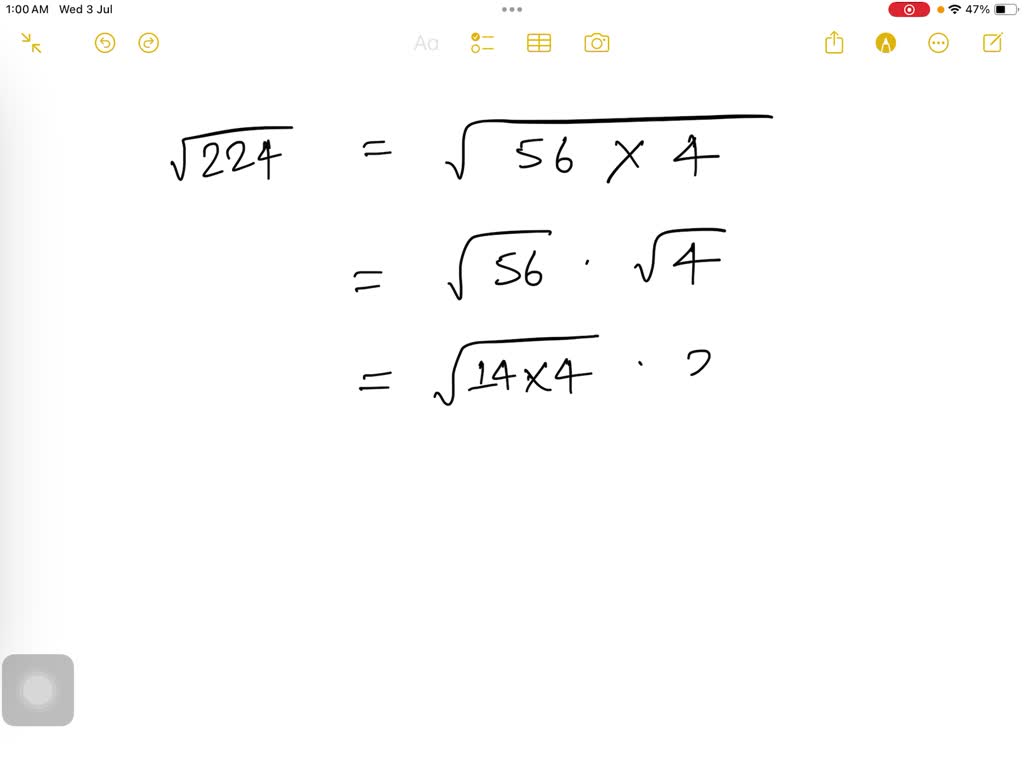 1:00 AM Wed 3 Jul 47%
Aa
√224 = √56 × 4
= √56 · √4
= √14×4 · 2